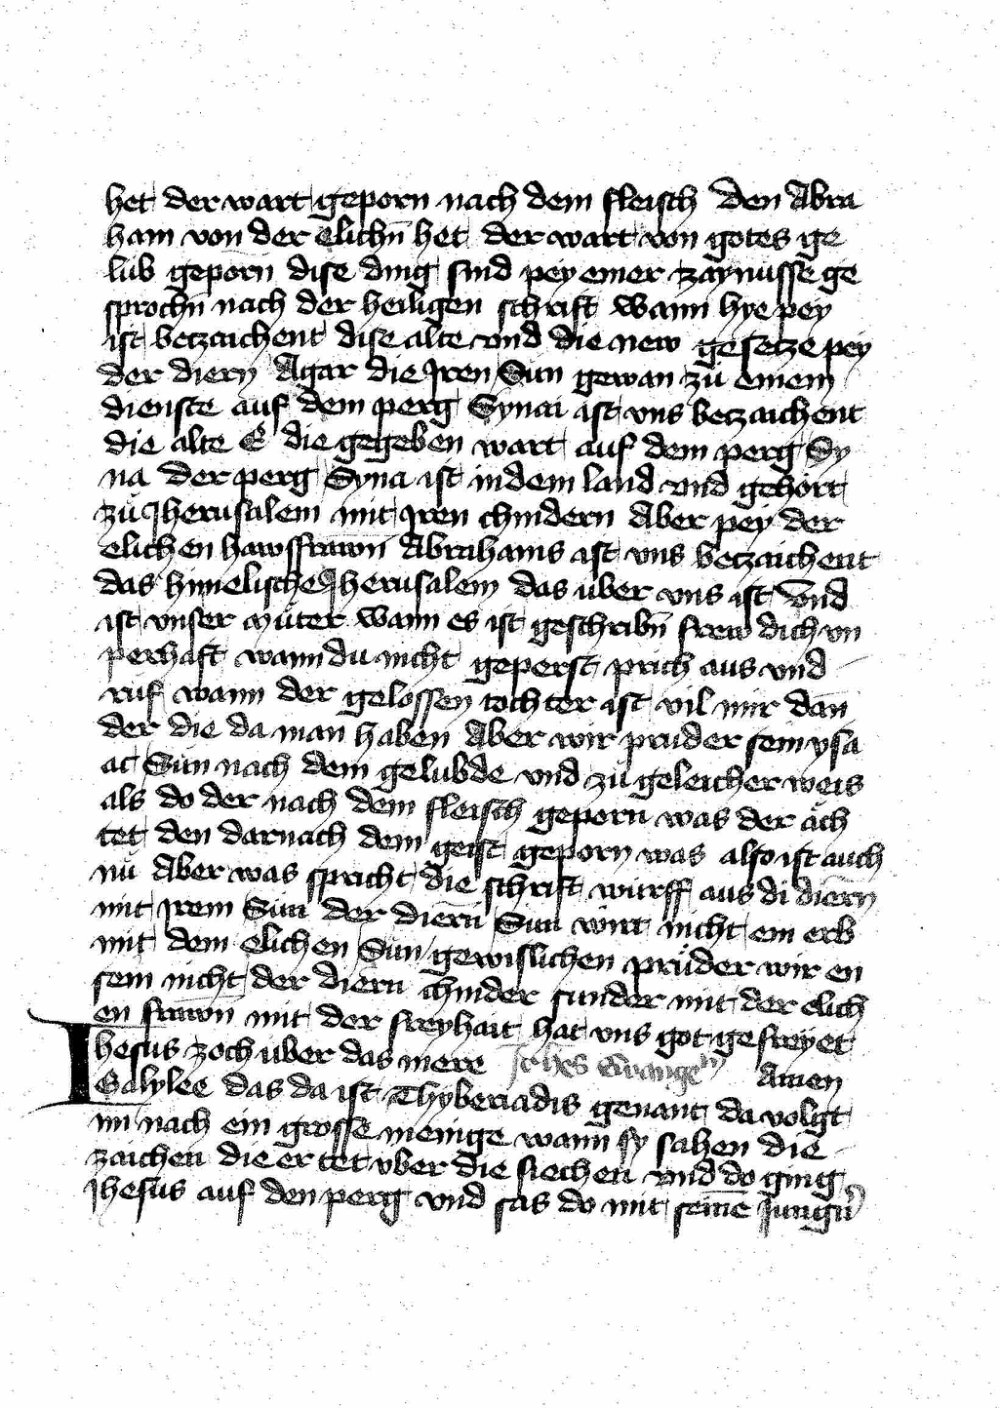 het der wart geporn nach dem fleisch Den Abra
ham von der elichn̄ het der wart von gotes ge
lub geporn dise ding sind pey einer zaynusse ge
sprochn̄ nach der heiligen schrift wann hye pey
ist betzaichent dise alte vnd die new gesetze pey
der diern Agar die Jren Sun gewan zu einem
dienste auf dem perg Synai ist vns betzaichent
die alte E die gegeben wart auf dem perg Sy
na der perg Syna ist in dem land vnd gehort
zů Jherusalem mit Jren chindern Aber pey der
elichen hawsfrawn̄ Abrahams ist vns betzaichent
das himelische Jherusalem das uber vns ist vnd
ist vnser můter wann es ist geschribn̄ frew dich vn
perhaft wann du nicht geperst prich aus vnd
ruf wann der gelossen tochter ist vil mir dan̄
der die da man haben Aber wir pruder sein ysa
ac Sun nach dem gelubde vnd zu geleicher weis
als do der nach dem fleisch geporn was der ach
tet den darnach dem geist geporn was also ist auch
nu Aber was spricht die schrift wurff aus di diern
mit Jrem Sun der diern Sun wirt nicht ein erb
mit dem elichen Sun gewislichen průder wir en
sein nicht der diern chinder sunder mit der elich
en frawn̄ mit der freyhait hat vns got gefreyet
Jhesus zoch uber das mere Joh̄es Ewange Amen
Galylee das da ist Thyberiadis genant da volgt
im nach ein grosse menige wann sy sahen die
zaichen die er tet vber die siechen vnd do ging
Jhesus auf den perg vnd sas do mit seinē Jungn̄